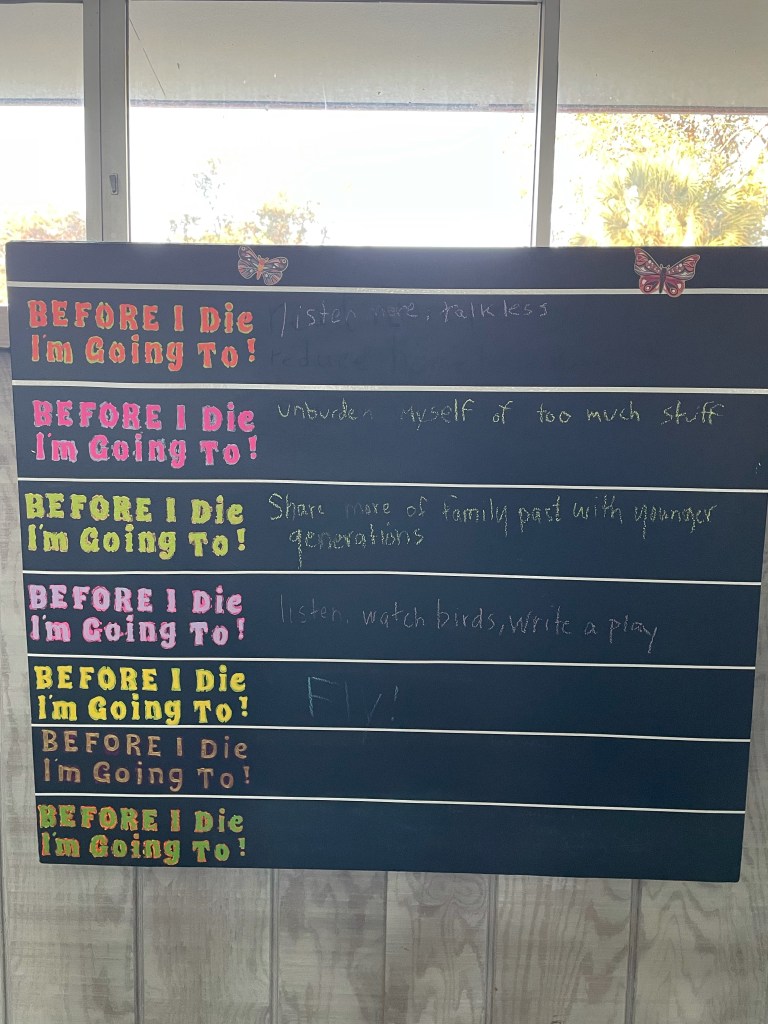 BEFORE I Die
I'm Going To!
listen more, talk less
BEFORE I Die
I'm Going To!
unburden myself of too much stuff
BEFORE I Die
I'm Going To!
Share more of family past with younger
generations
BEFORE I Die
I'm Going To!
listen, watch birds, write a play
BEFORE I Die
I'm Going To!
Fly!
BEFORE I Die
I'm Going To!
BEFORE I Die
I'm Going To!